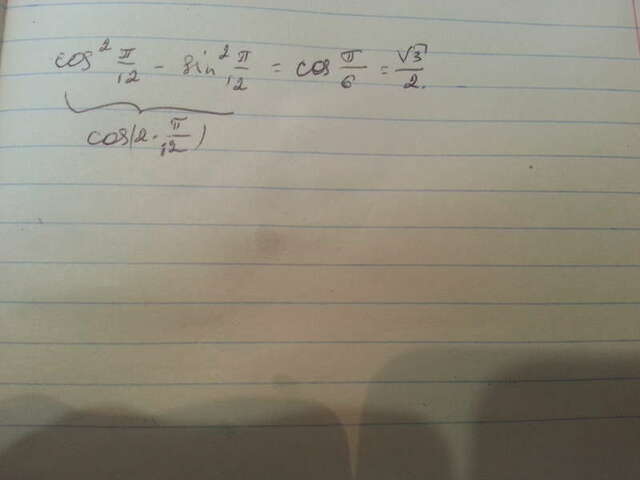 cos² π/12 - sin² π/12 = cos π/6 = √3/2.
cos(2 · π/12)